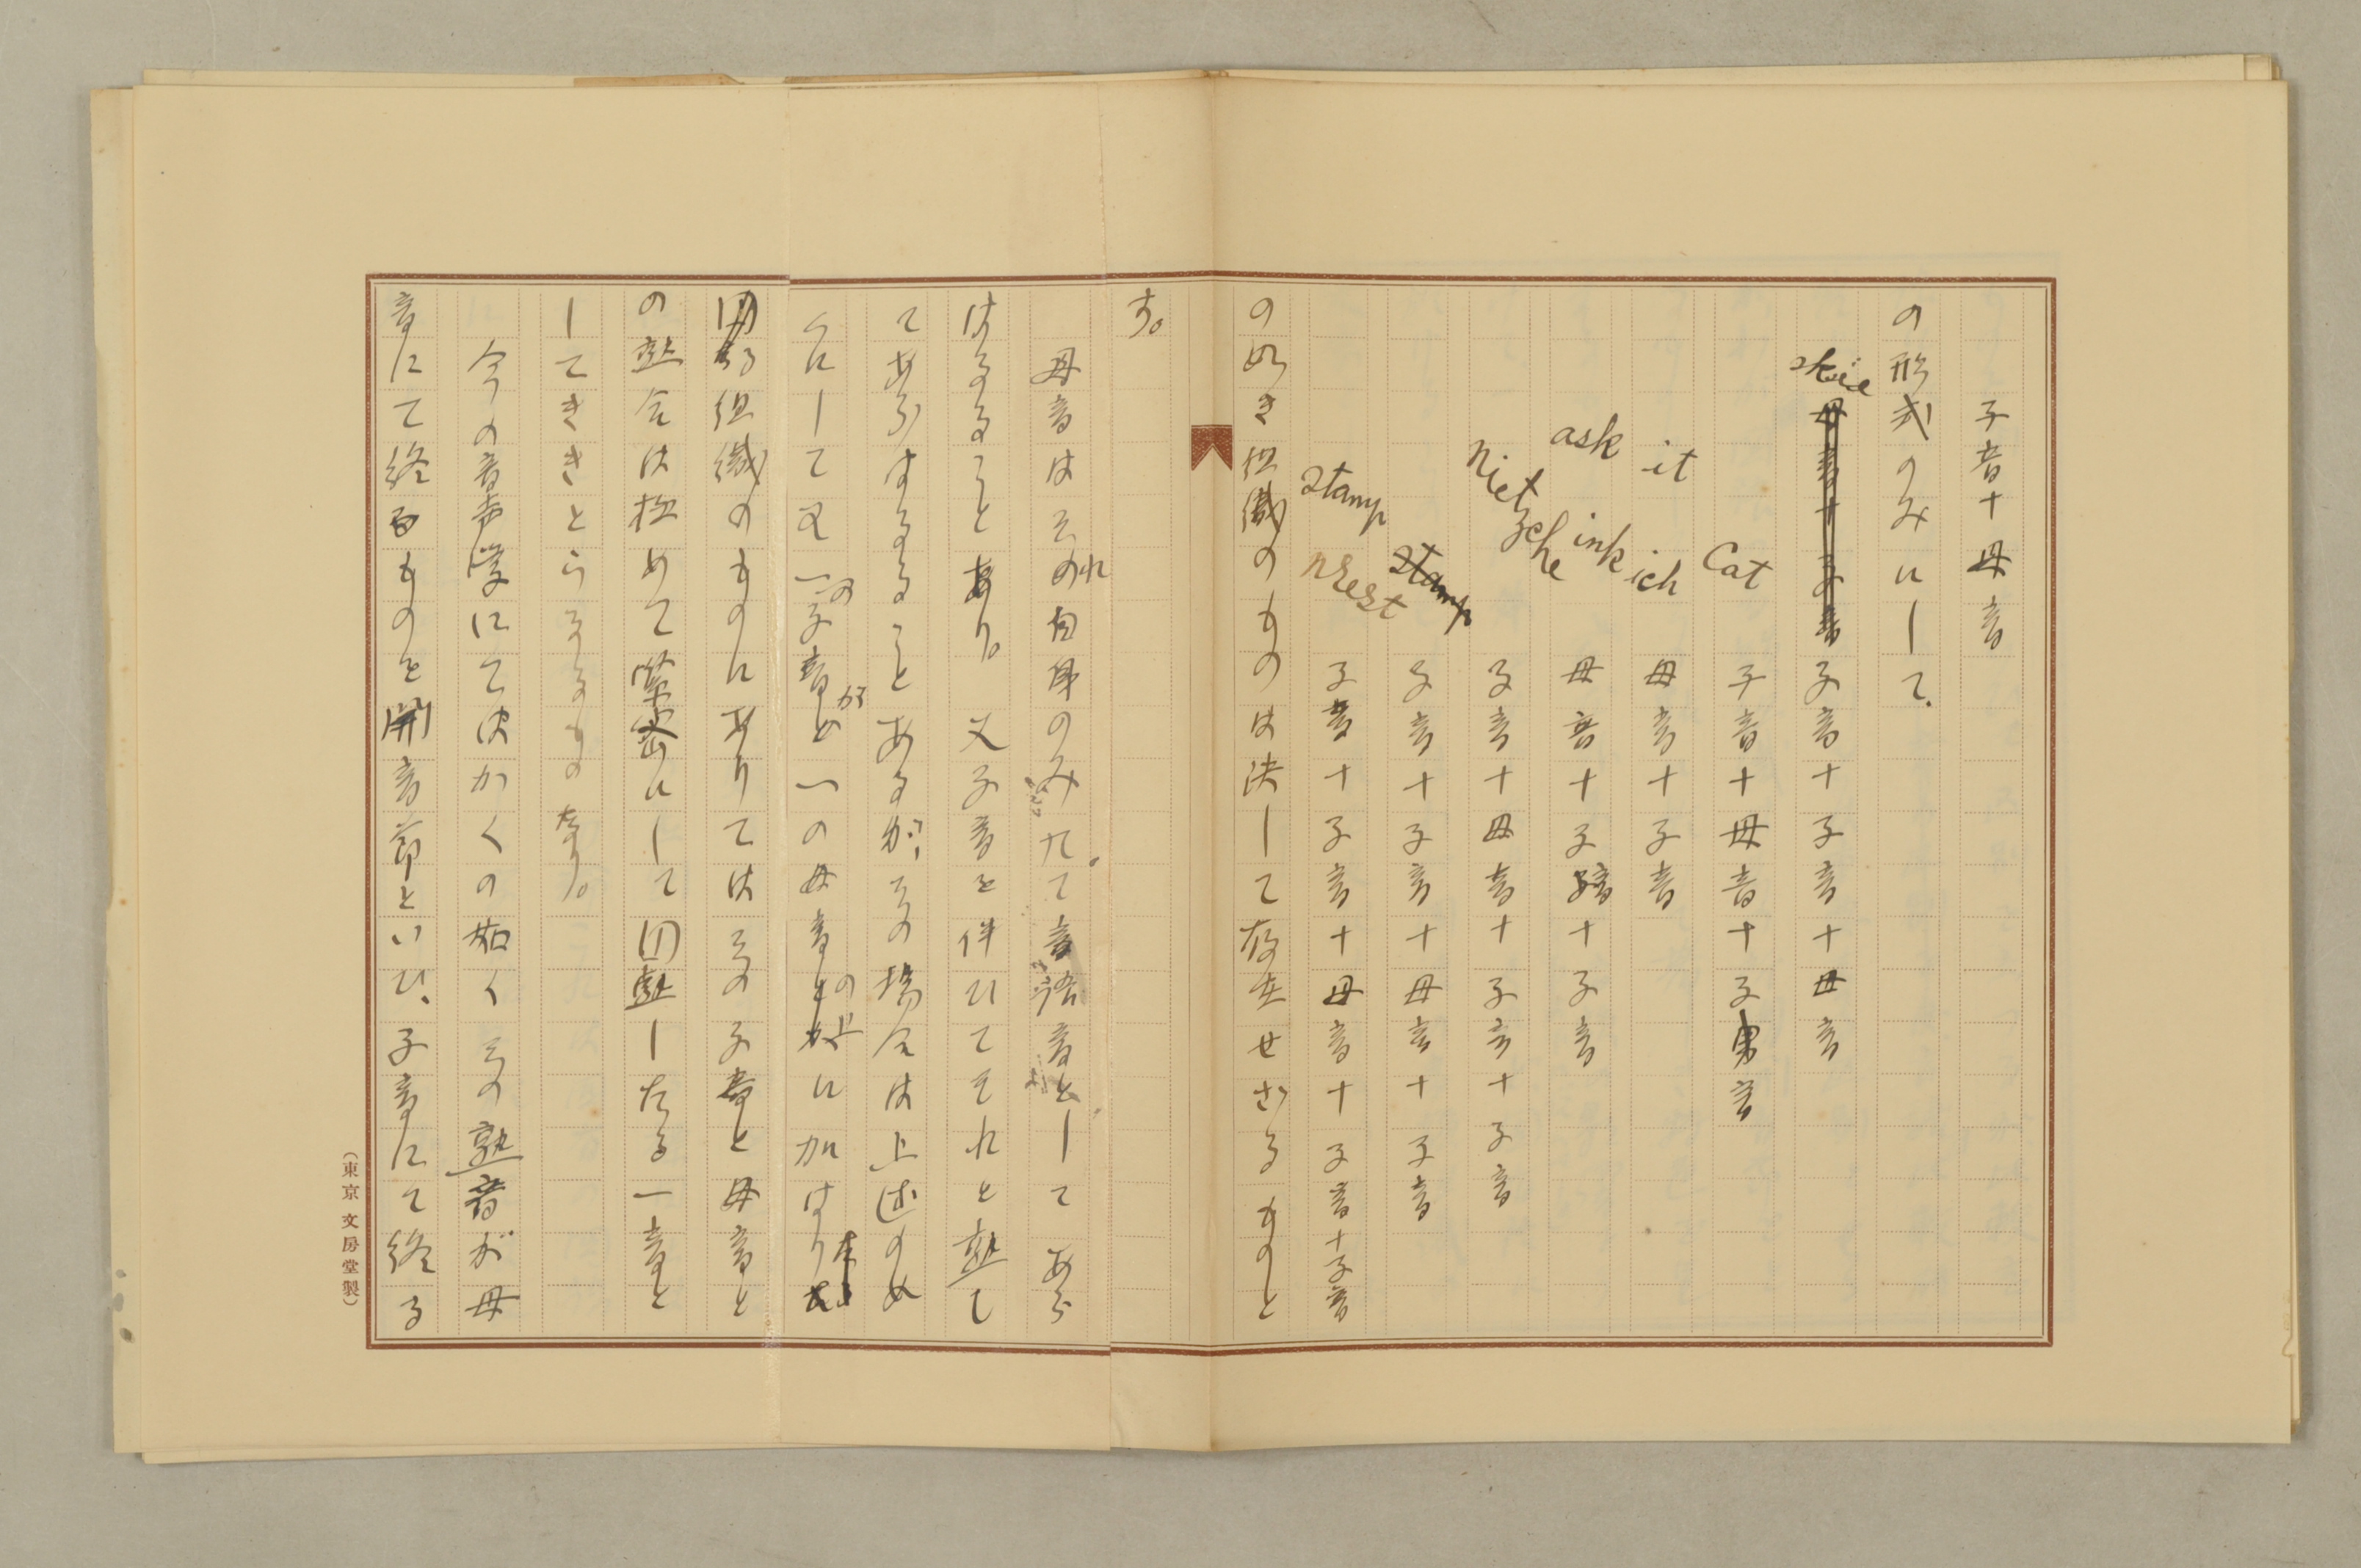 子音十母音
の形式のみにして、
skie 子音十子音十母音
cat 子音十母音十子音
it ich 母音十子音
ask ink 母音十子音十子音
Nietzche 子音十母音十子音十子音
stamp 子音十子音十母音十子音
stamp nrest 子音十子音十母音十子音十子音
の如き組織のものは決して存在せざるものと
す。
母音はそれ自身のみにて音語音として あら
はるることあり。 又子音を伴ひてそれと熟し
てあらはるることあるが、その場合は上述の如
くにして又一の子音が一の母音の上に加はり
たる組織のものにありてはその子音と母音と
の熟合は極めて緊密にして円熟したる一音と
してききとらるるものなり。
今の音声学にてはかくの如くその熟音が母
音にて終るものを開音節といひ、子音にて終る
(東京文房堂製)